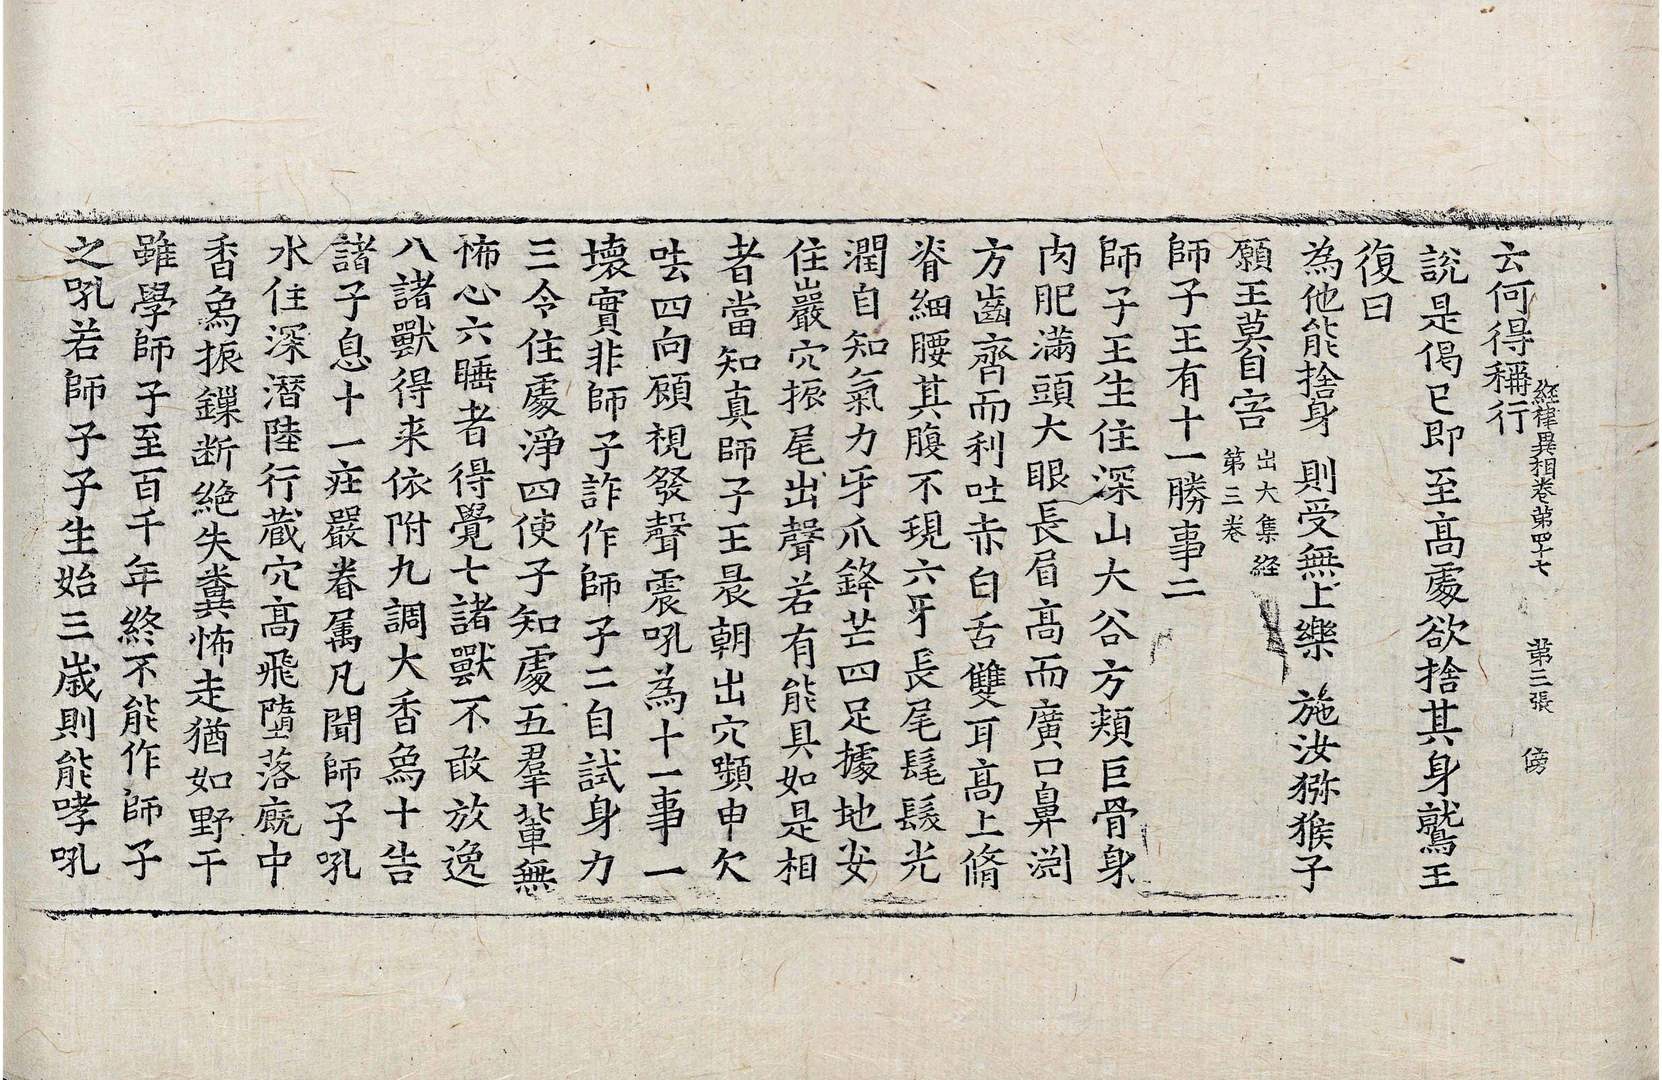 云何得稱行
經律異相卷第四十七 第三張 傍
說是偈已即至高處欲捨其身鷲王
復曰
為他能捨身 則受無上樂 施汝獼猴子
願王莫自害 出大集経
第三卷
師子王有十一勝事二
師子王生住深山大谷方頰巨骨身
肉肥滿頭大眼長眉高而廣口鼻渕
方齒齊而利吐赤白舌雙耳高上脩
脊細腰其腹不現六牙長尾髦髮光
潤自知氣力牙爪鋒芒四足據地安
住巖穴振尾出聲若有能具如是相
者當知真師子王晨朝出穴頻申欠
呿四向顧視發聲震吼為十一事一
壞實非師子詐作師子二自試身力
三令住處淨四使子知處五羣輩無
怖心六睡者得覺七諸獸不敢放逸
八諸獸得来依附九調大香象十告
諸子息十一莊嚴眷属凡聞師子吼
水住深潜陸行蔵穴高飛墮落廐中
香象振鏁断絶失糞怖走猶如野干
雖學師子至百千年終不能作師子
之吼若師子子生始三歲則能哮吼